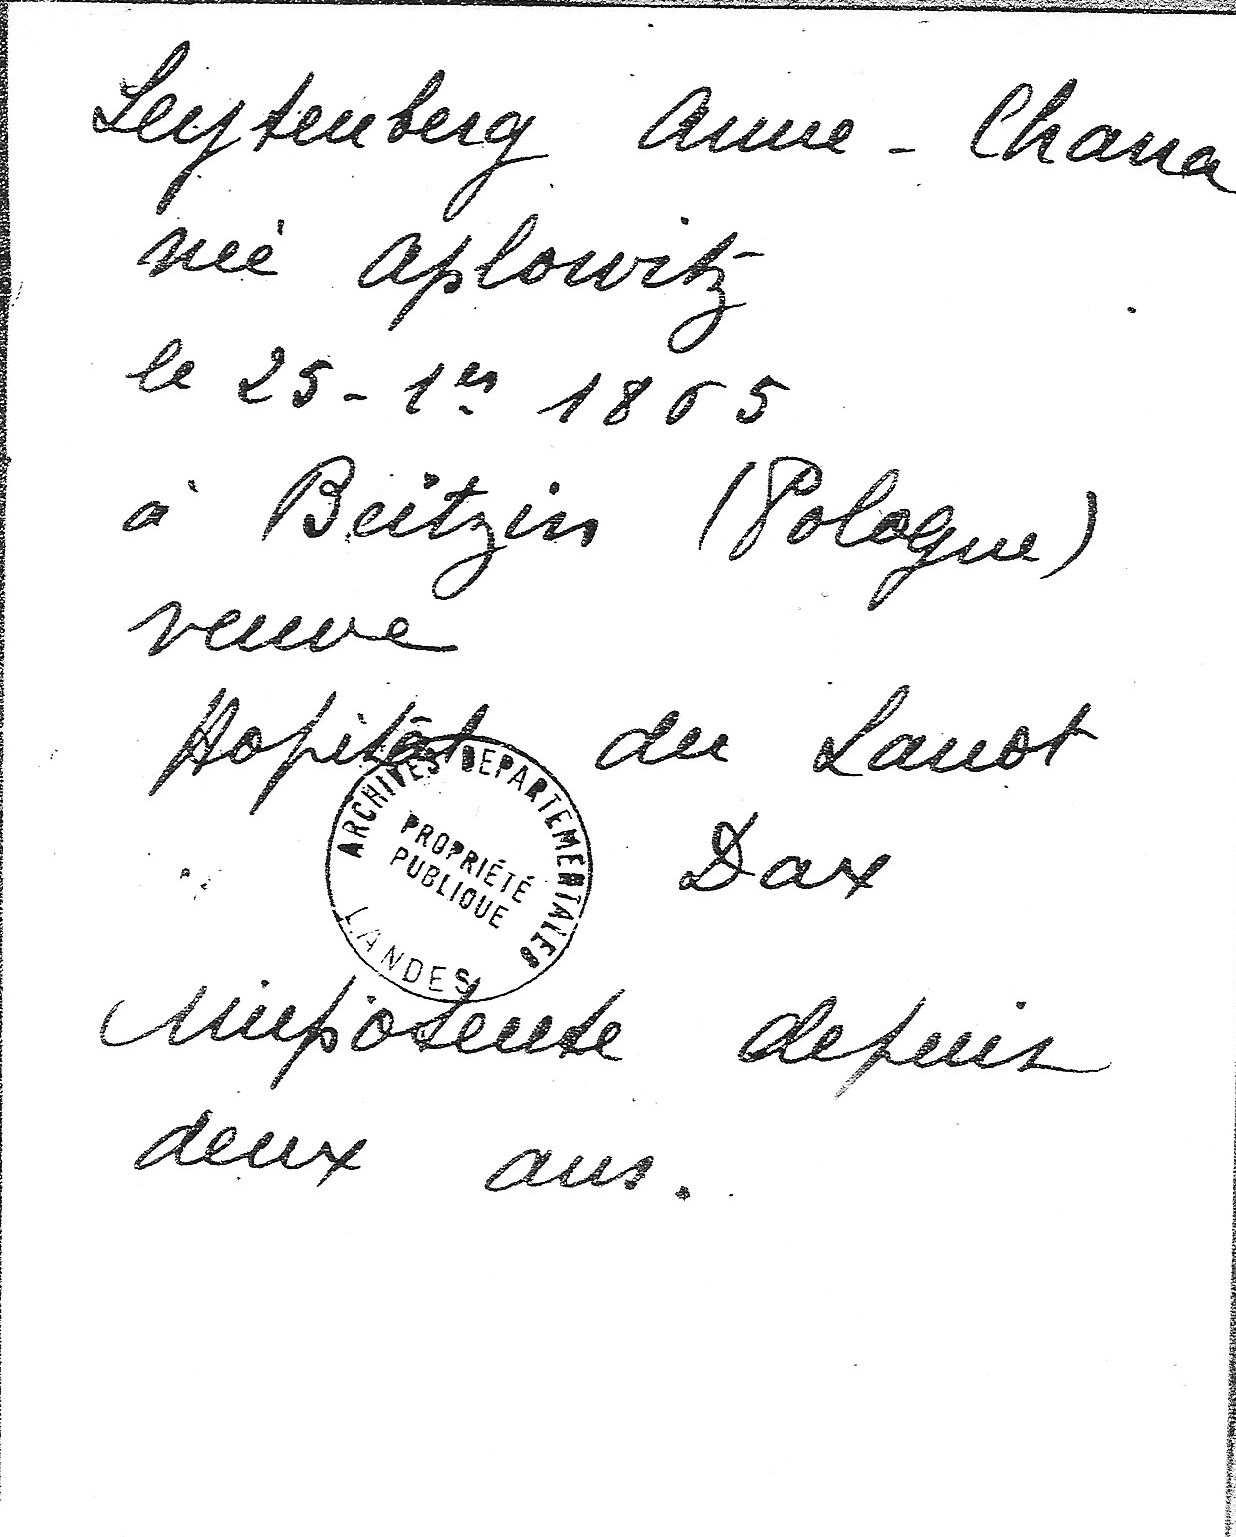 Leytenberg Anne - Chana
née Aplowitz
le 25 - 1er 1865
à Beitzin (Pologne)
veuve
Hopital du Lanot
Dax
ARCHIVES DEPARTEMENTALES
PROPRIÉTÉ
PUBLIQUE
LANDES
impotente depuis
deux ans.